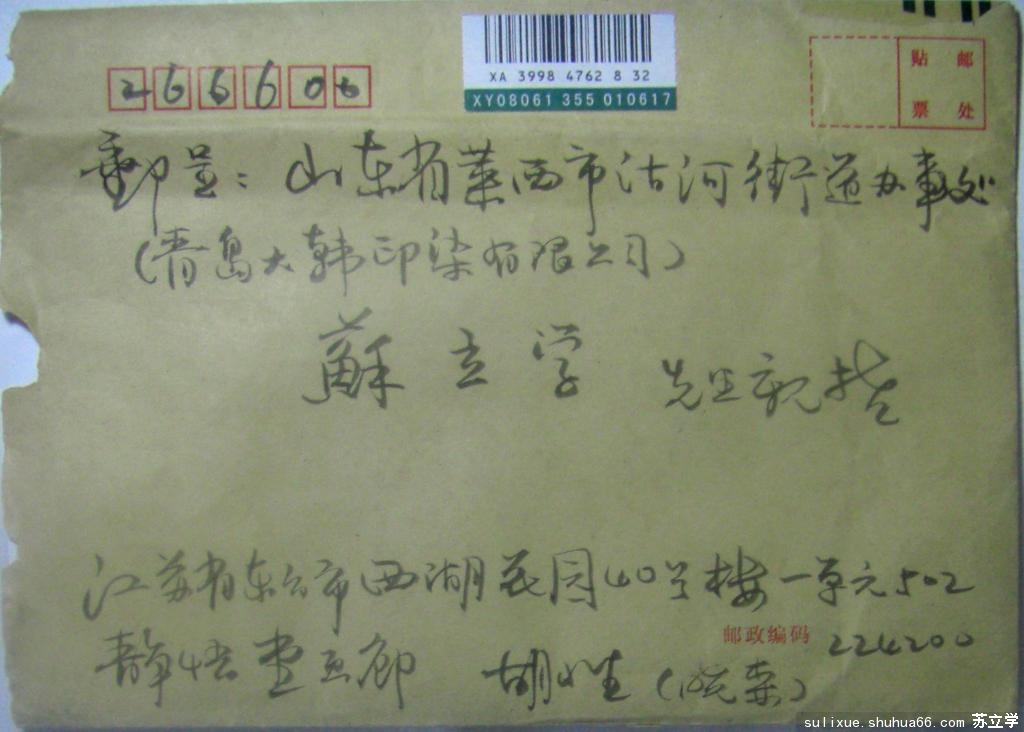 XA 3998 4762 8 32
XY08061 355 010617
266600
贴 邮
票 处
邮呈：山东省莱西市沽河街道办事处
（青岛大韩印染有限公司）
蘇立学 先生親
江苏省东台市西湖花园40号楼一单元502
邮政编码 224200
静悟堂画廊 胡生（晓森）
sulixue.shuhua66.com 苏立学